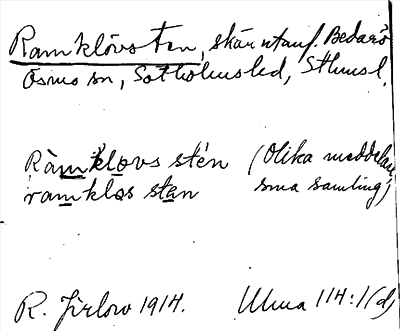 Ramklövsten, skär utanf. Bedarö
Ösmo sn, Sotholms hd, Sthms l.
Ràmklovs stén (Olika meddelare,
ramklos stan sma samling)
R. Jirlow 1914. Ulma 114:1(d)